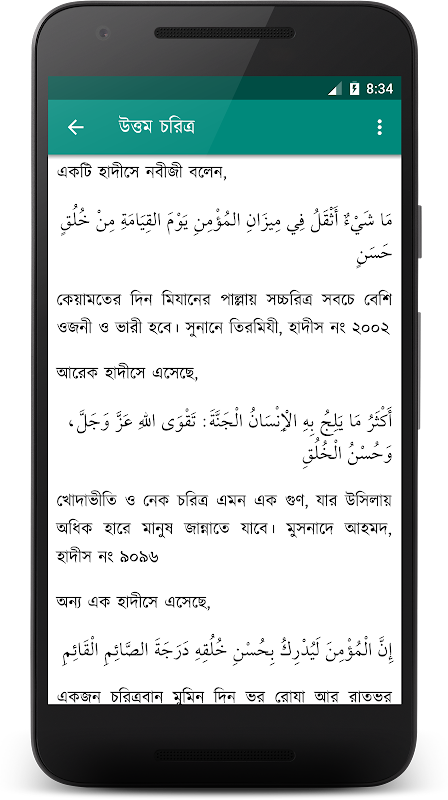 8:34
উত্তম চরিত্র
একটি হাদীসে নবীজী বলেন,
مَا شَيْءٌ أَثْقَلُ فِي مِيزَانِ المُؤْمِنِ يَوْمَ القِيَامَةِ مِنْ خُلُقٍ
حَسَنٍ
কেয়ামতের দিন মিযানের পাল্লায় সচ্চরিত্র সবচে বেশি
ওজনী ও ভারী হবে। সুনানে তিরমিযী, হাদীস নং ২০০২
আরেক হাদীসে এসেছে,
أَكْثَرُ مَا يَلِجُ بِهِ الْإِنْسَانُ الْجَنَّةَ: تَقْوَى اللهِ عَزَّ وَجَلَّ،
وَحُسْنُ الْخُلُقِ
খোদাভীতি ও নেক চরিত্র এমন এক গুণ, যার উসিলায়
অধিক হারে মানুষ জান্নাতে যাবে। মুসনাদে আহমদ,
হাদীস নং ৯০৯৬
অন্য এক হাদীসে এসেছে,
إِنَّ الْمُؤْمِنَ لَيُدْرِكُ بِحُسْنِ خُلُقِهِ دَرَجَةَ الصَّائِمِ الْقَائِمِ
একজন চরিত্রবান মুমিন দিন ভর রোযা আর রাতভর